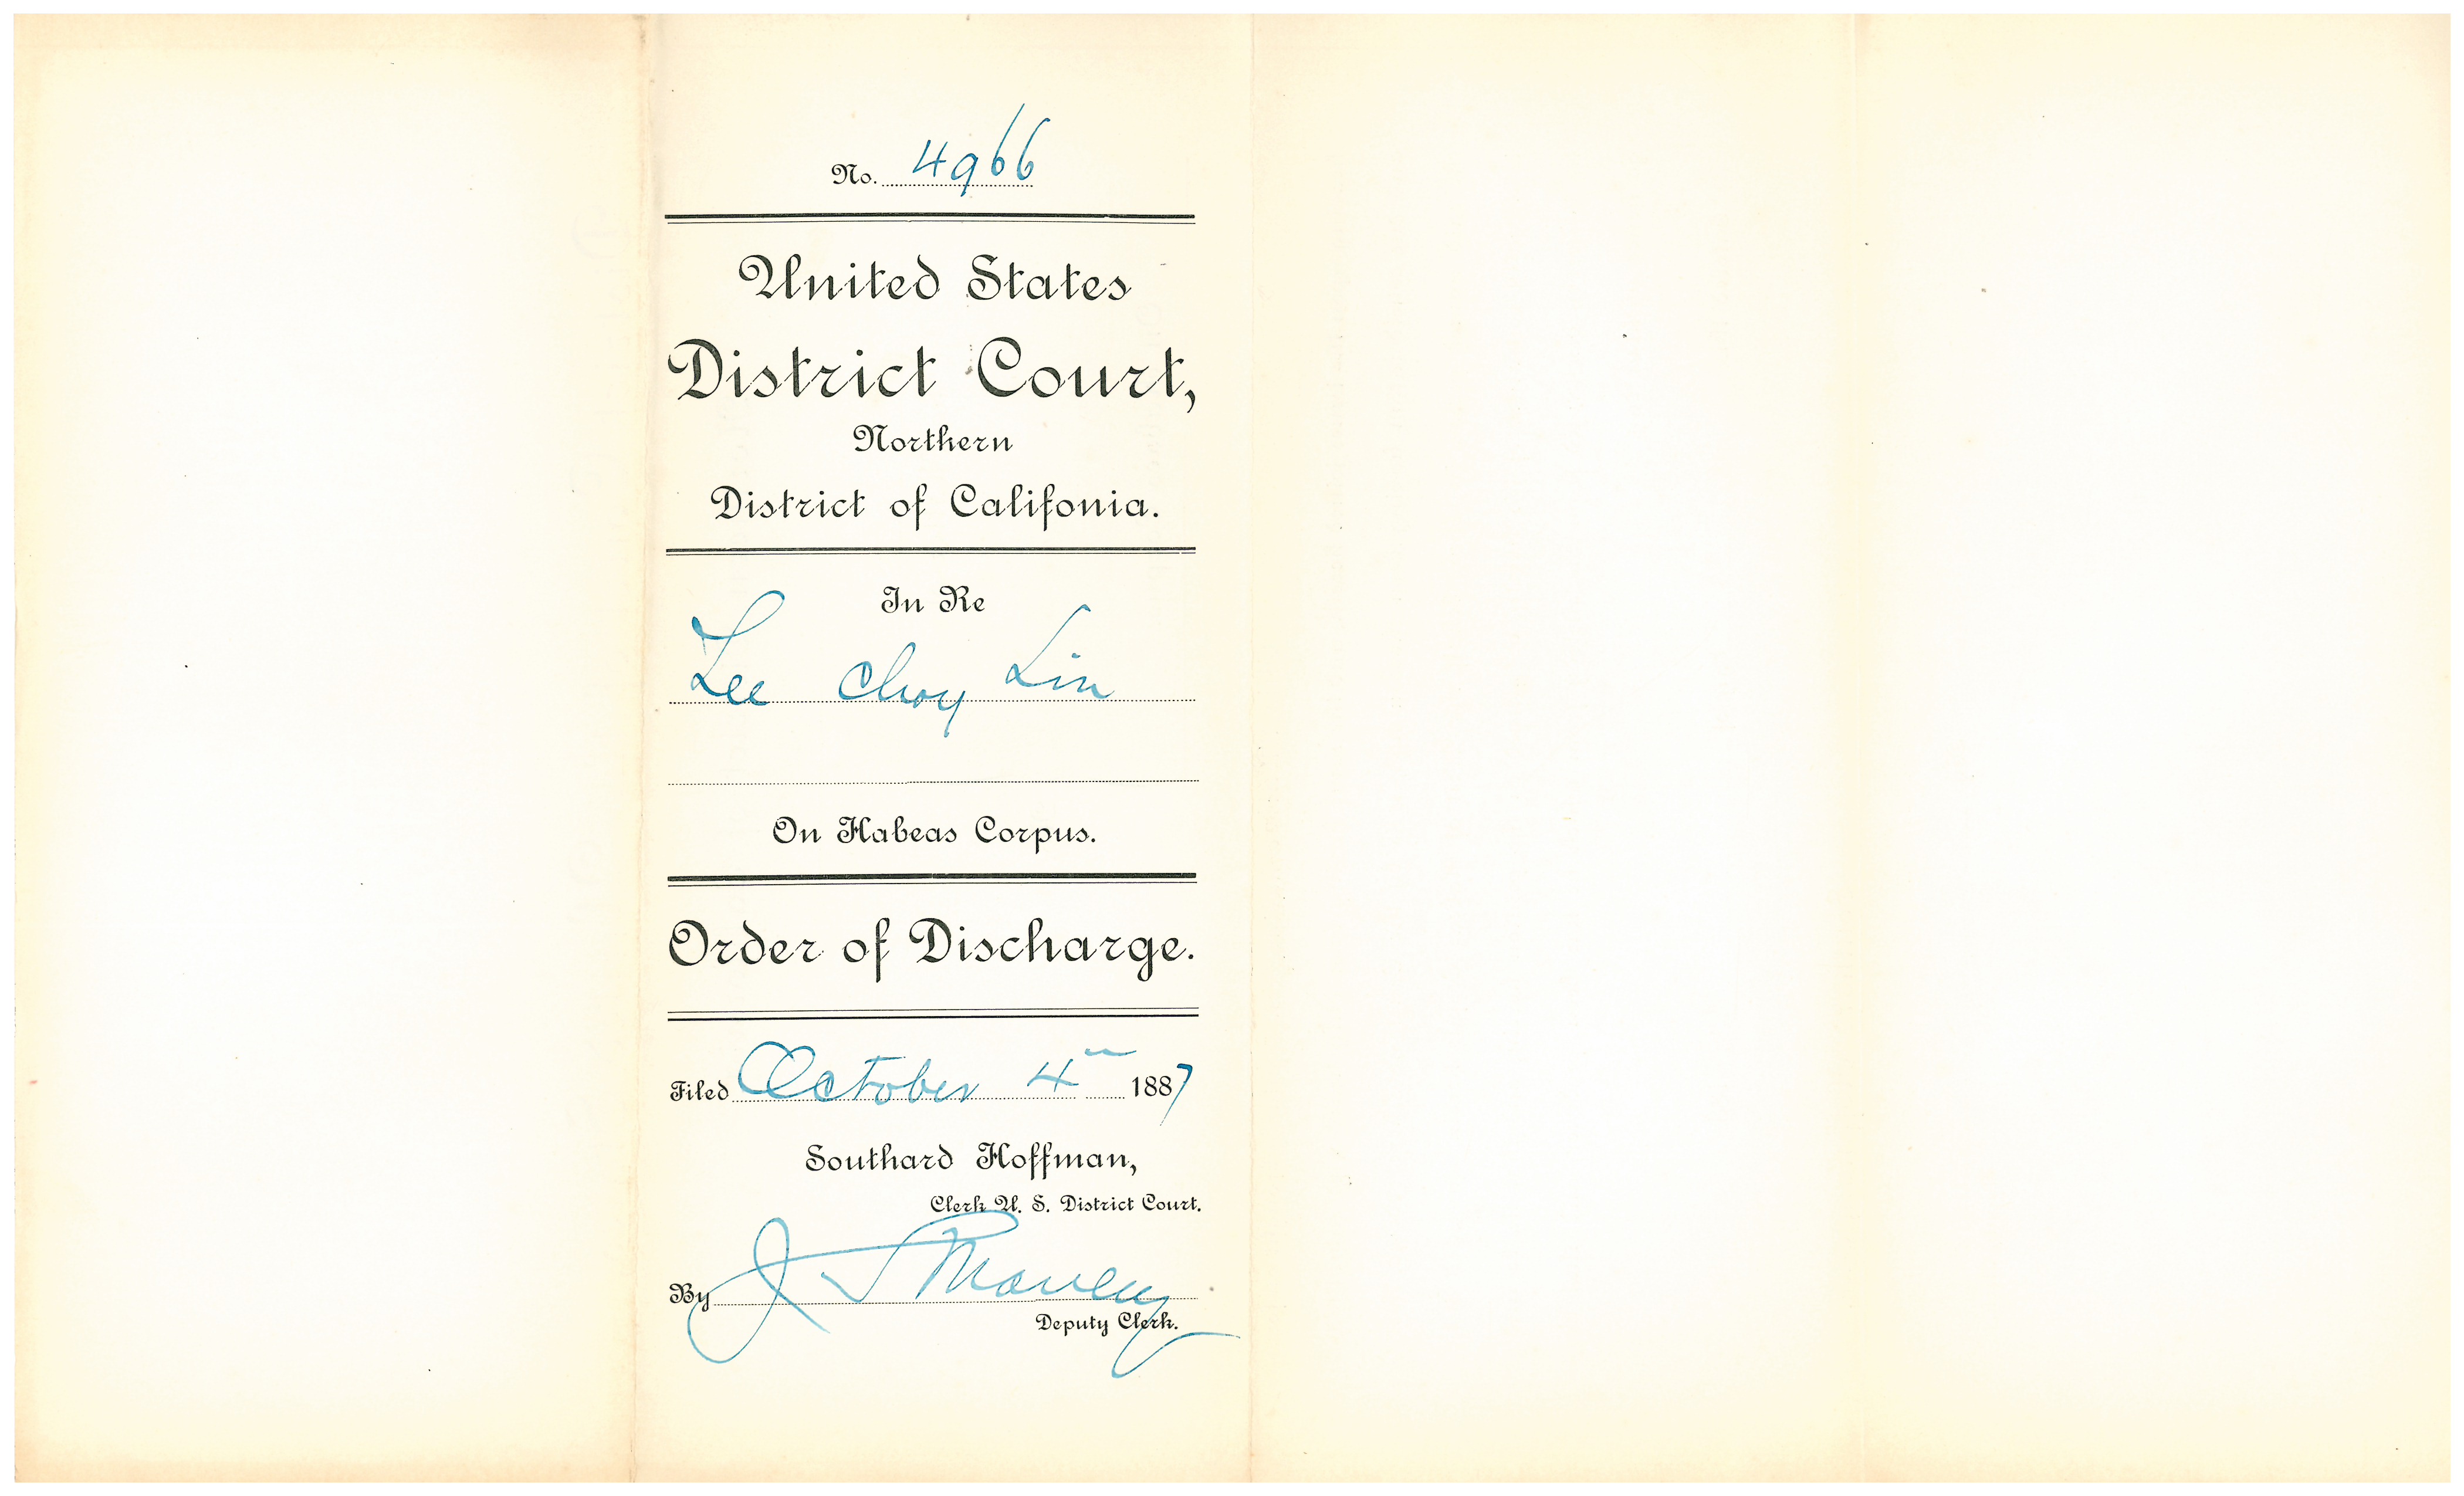 No. 4966
United States
District Court,
Northern
District of Califonia.
In Re
Lee Choy Lin
On Habeas Corpus.
Order of Discharge.
Filed October 4th 1887
Southard Hoffman,
Clerk U. S. District Court.
By J S Manley
Deputy Clerk.